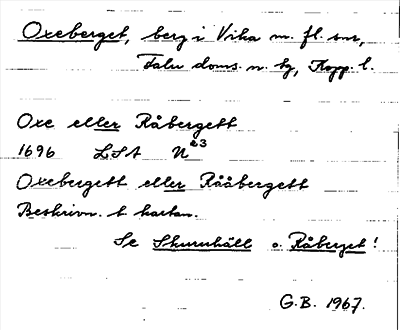 Oxeberget, berg i Vika m. fl. snr,
Falu doms. n. tg, Kopp. l.
Oxe eller Råbergett
1696 LSA N e3
Oxebergett eller Rååbergett
Beskrivn. t kartan.
Se Skuruhäll o. Råberget!
G.B. 1967.